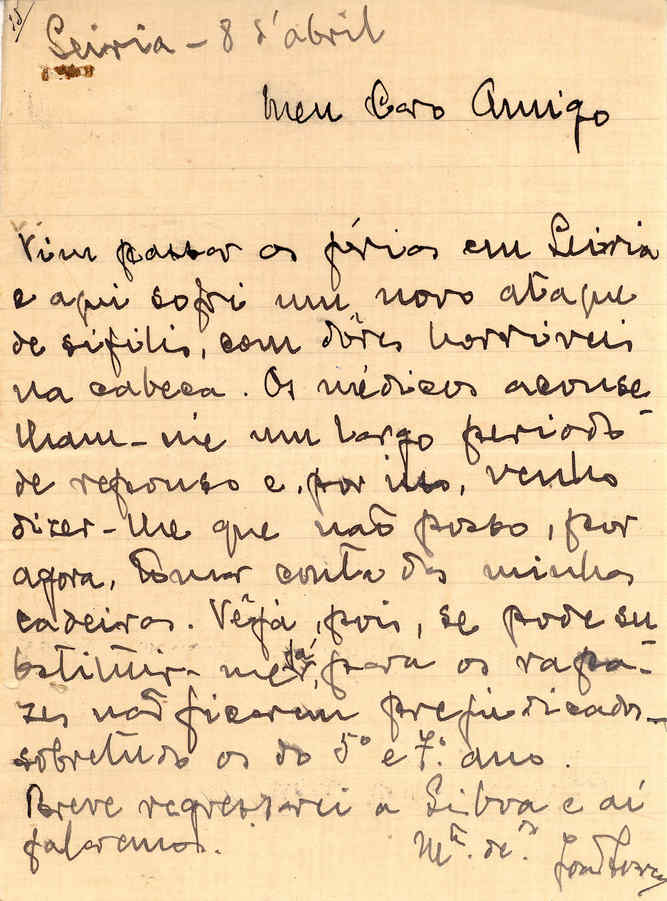 Leiria - 8 d'abril
Meu Caro Amigo
Vim passar as férias em Leiria
e aqui sofri um novo ataque
de sífilis, com dôres horríveis
na cabeca. Os médicos aconse
lham-me um largo periodo
de repouso e, por isso, venho
dizer-lhe que não posso, por
agora, tomar conta das minhas
cadeiras. Vêja, pois, se pode su
bstituir-me já, para os rapa-
zes não ficarem prejudicados
sobretudo os do 5º e 7º ano.
Breve regressarei a Lisboa e aí
falaremos.
Mto. de.